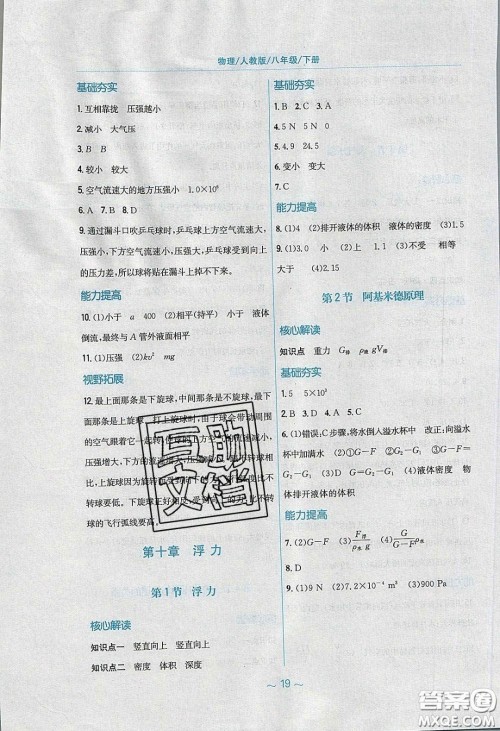 物理/人教版/八年级/下册
基础夯实
1. 互相靠拢 压强越小
2. 减小 大气压
3. B B
4. 较小 较大
5. 空气流速大的地方压强小 1.0×10⁶
6. A 7. B 8. D
9. 通过漏斗口吹乒乓球时，乒乓球上方空气流速大，
压强小，下方空气流速小，压强大，乒乓球受到向上
的压力差，所以球将贴在漏斗上掉不下来。
能力提高
10. (1)小于 a 400 (2)相平(持平) 小于 液体
倒流，最终与 A 管外液面相平
11. (1)压强 (2)kv² mg
视野拓展
12. 最上面那条是下旋球，中间那条是不旋球，最下
面那条是上旋球。打上旋球时，由于球会带动周围
的空气跟着它一起
压强增大，
故上旋球
转球要低。下旋球正好相反，
的飞行弧线要高。
第十章 浮力
第1节 浮力
核心解读
知识点一 竖直向上 竖直向上
知识点二 密度 体积 深度
基础夯实
1. B 2. C 3. A
4. 5 N 5 N 0
5. 4.9 5 N
6. 变小 变大
7. C
能力提高
8. (1)4 (2)排开液体的体积 液体的密度 (3)1.5
9. (1)3.0 小 (2)上 1 (3)不受 相等
大于 (4)2.15
第2节 阿基米德原理
核心解读
知识点 重力 G排 ρ液 gV排
基础夯实
1. 5 5×10³
2. B 3. D 4. A 5. C
6. (1)错误：C步骤，将水倒入溢水杯中 改正：向溢水
杯中加满水 (2)G－F G₂－G₁ (3)G－F＝
G₂－G₁ D G＝G₂－G₁ (4)液体密度 物
体排开液体的体积
能力提高
7. (2)G－F (3)F浮/ρ水g (4)G/(G－F)ρ水
8. D
9. (1)9 N (2)7.2×10⁻⁴ m³ (3)900 Pa
～ 19 ～
互助
文档
答案圈
MXQE.COM